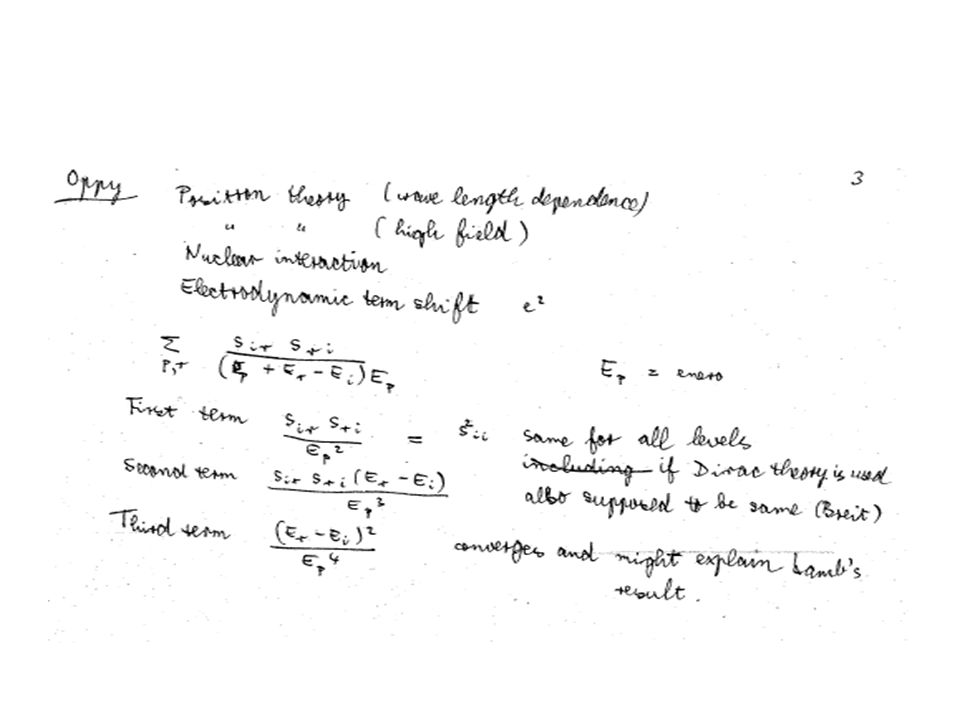 Oppy Positron theory (wave length dependence) 3
" " (high field)
Nuclear interaction
Electrodynamic term shift e²
Σ_{p,r} S_{ir} S_{ri} / (E_p + E_r − E_i) E_p    E_p =
First term S_{ir} S_{ri} / E_p² = S²_{ii} same for all levels
Second term S_{ir} S_{ri} (E_r − E_i) / E_p³ including if Dirac theory is used
also supposed to be same (Breit)
Third term (E_r − E_i)² / E_p⁴ converges and might explain Lamb's
result.